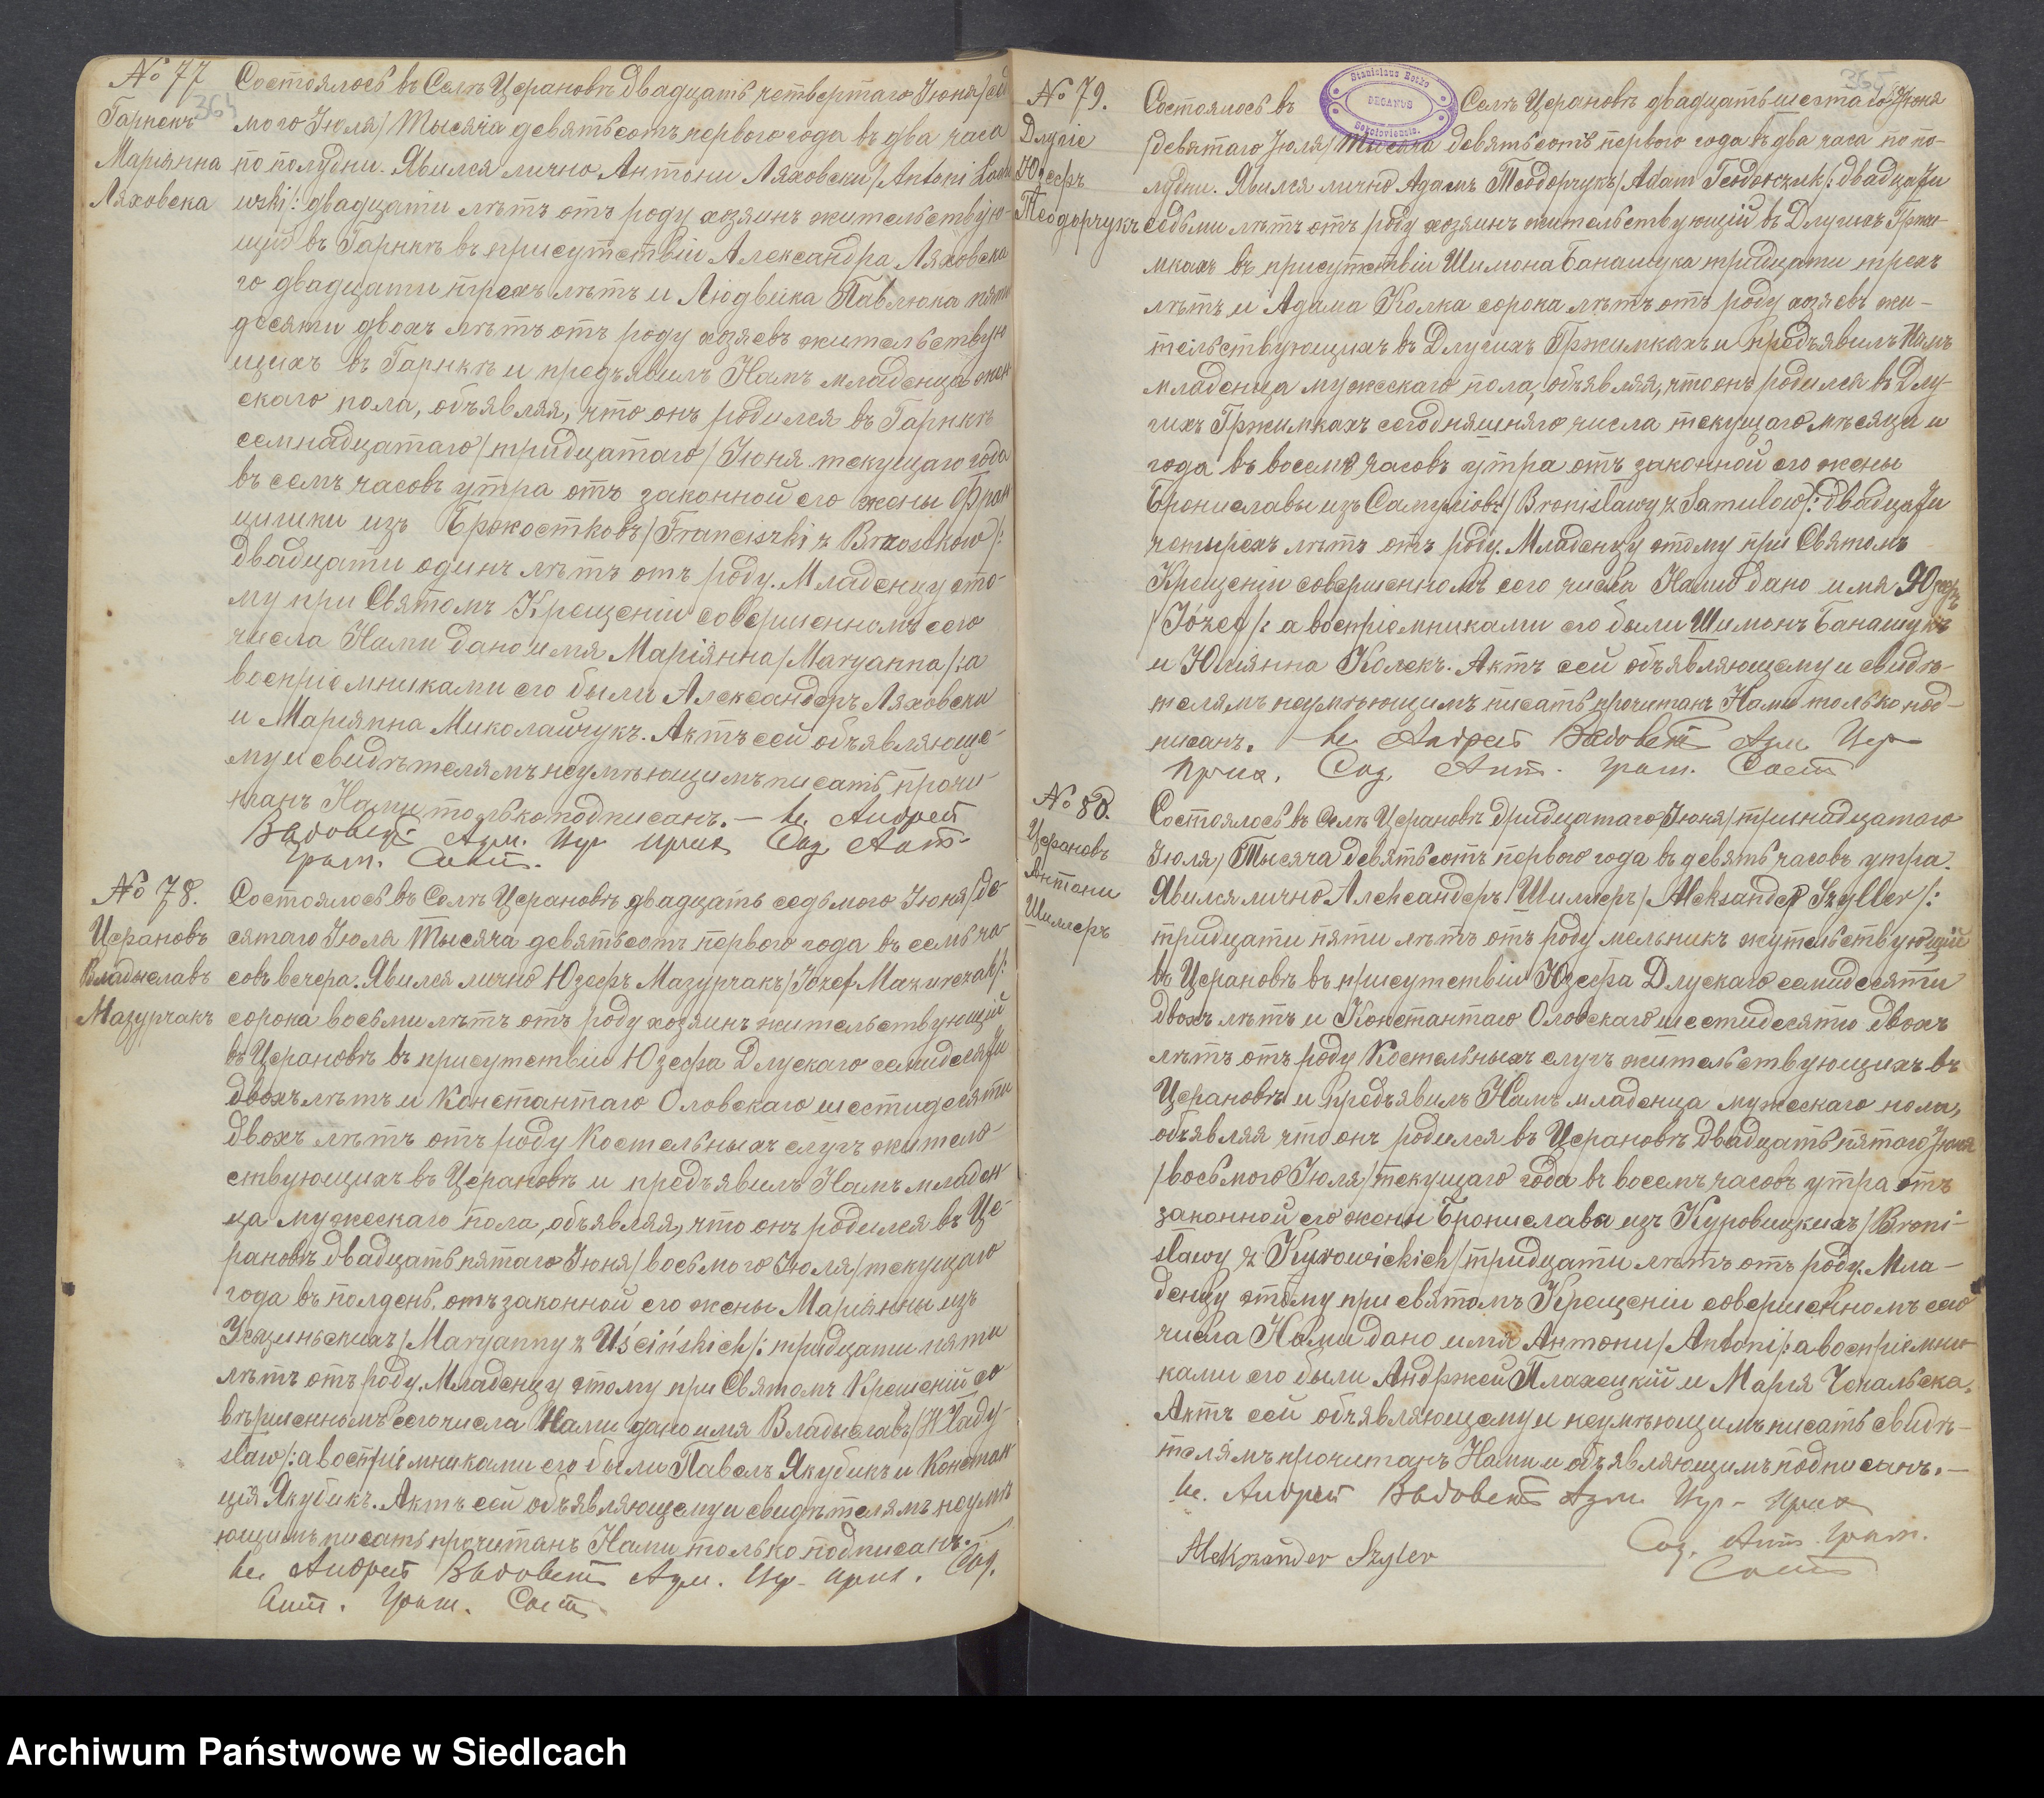 № 77
364
Гарнекъ
Маріянна
Ляховска
Состоялось въ Селѣ Церановѣ двадцать четвертаго Іюня /сед
мого Іюля/ Тысяча девятьсотъ первого года въ два часа
по полудни. Явился лично Антони Ляховски /Antoni Lacho
wski/: двадцати лѣтъ отъ роду хозяинъ жительствую-
щій въ Гарнкѣ въ присутствіи Александра Ляховска
го двадцати трехъ лѣтъ и Людвика Павлюка пяти
десяти двохъ лѣтъ отъ роду хозяевъ жительствую
щихъ въ Гарнкѣ и предъявилъ Намъ младенца жен
скаго пола, объявляя, что онъ родился въ Гарнкѣ
семнадцатаго /тридцатаго/ Іюня текущаго года
въ семъ часовъ утра отъ законной его жены Фран
цишки изъ Бржостковъ /Franciszki z Brzostków/:
двадцати одинъ лѣтъ отъ роду. Младенцу это-
му при Святомъ Крещеніи совершенномъ сего
числа Нами дано имя Маріянна /Maryanna/: а
воспріемниками его были Александеръ Ляховски
и Маріянна Миколайчукъ. Актъ сей объявляюще-
му и свидѣтелямъ неумѣющимъ писать прочи-
танъ Нами только подписанъ. — Кс. Андрей
Вадовскі Адм. Цер прих Сод Акт-
Граж. Сост.
№ 78.
Церановъ
Владыславъ
Мазурчакъ
Состоялось въ Селѣ Церановѣ двадцать седьмого Іюня /де-
сятаго Іюля Тысяча девятьсотъ первого года въ семь ча-
совъ вечера. Явился лично Юзефъ Мазурчакъ /Józef Mazurczak/:
сорока восьми лѣтъ отъ роду хозяинъ жительствующій
въ Церановѣ въ присутствіи Юзефа Длускаго семидесяти
двохъ лѣтъ и Константаго Оловскаго шестидесяти
двохъ лѣтъ отъ роду Костельныхъ слугъ житель-
ствующихъ въ Церановѣ и предъявилъ Намъ младен
ца мужескаго пола, объявляя, что онъ родился въ Це-
рановѣ двадцать пятаго Іюня /восьмого Іюля/ текущаго
года въ полдень, отъ законной его жены Маріянны изъ
Усциньскихъ /Maryanny z Uścińskich/: тридцати пяти
лѣтъ отъ роду. Младенцу этому при Святомъ Крещеніи со
вершенномъ сего числа Нами дано имя Владыславъ /Włady-
sław/: а воспріемниками его были Павелъ Якубикъ и Констан
ція Якубикъ. Актъ сей объявляющему и свидѣтелямъ неумѣ
ющимъ писать прочитанъ Нами только подписанъ. —
Кс. Андрей Вадовскі Адм. Цер- прих. Сод.
Акт. Граж. Сост
365
№ 79.
Длугіе
Юзефъ
Теодорчукъ
Stanislaus Botko
DECANUS
Sokoloviensis.
Состоялось въ Селѣ Церановѣ двадцать шестаго Іюня
/девятаго Іюля/ Тысяча девятьсотъ первого года въ два часа по по-
лудни. Явился лично Адамъ Теодорчукъ /Adam Teodorczuk/: двадцати
седьми лѣтъ отъ роду хозяинъ жительствующій въ Длугихъ Гржи-
мкахъ въ присутствіи Шимона Банащука тридцати трехъ
лѣтъ и Адама Колка сорока лѣтъ отъ роду хозяевъ жи-
тельствующихъ въ Длугихъ Гржимкахъ и предъявилъ Намъ
младенца мужескаго пола, объявляя, что онъ родился въ Длу-
гихъ Гржимкахъ сегодняшняго числа текущаго мѣсяца и
года въ восемъ часовъ утра отъ законной его жены
Брониславы изъ Самуліовъ /Bronisławy z Samulów/: двадцати
четырехъ лѣтъ отъ роду. Младенцу этому при Святомъ
Крещеніи совершенномъ сего числа Нами дано имя Юзефъ
/Józef/: а воспріемниками его были Шимонъ Банащукъ
и Юліянна Колекъ. Актъ сей объявляющему и свидѣ-
телямъ неумѣющимъ писать прочитанъ Нами только под-
писанъ. Кс Андрей Вадовскі Адм. Цер
прих. Сод. Акт. Граж. Сост
№ 80.
Церановъ
Антони
Шиллеръ
Состоялось въ Селѣ Церановѣ тридцатаго Іюня /тринадцатаго
Іюля/ Тысяча девятьсотъ первого года въ девять часовъ утра.
Явился лично Александеръ Шиллеръ /Aleksander Szyller/:
тридцати пяти лѣтъ отъ роду мельникъ жительствующій
въ Церановѣ въ присутствіи Юзефа Длускаго семидесяти
двохъ лѣтъ и Константаго Оловскаго шестидесяти двохъ
лѣтъ отъ роду Костельныхъ слугъ жительствующихъ въ
Церановѣ и предъявилъ Намъ младенца мужескаго пола,
объявляя что онъ родился въ Церановѣ двадцать пятаго Іюня
/восьмого Іюля/ текущаго года въ восемъ часовъ утра отъ
законной его жены Брониславы изъ Куровицкихъ /Broni-
sławy z Kurowickich/ тридцати лѣтъ отъ роду. Мла-
денцу этому при святомъ Крещеніи совершенномъ сего
числа Нами дано имя Антони /Antoni/: а воспріемни
ками его были Андржей Плахецкій и Марія Чекальска.
Актъ сей объявляющему и неумѣющимъ писать свидѣ-
телямъ прочитанъ Нами и объявляющимъ подписанъ. —
Кс. Андрей Вадовскі Адм. Цер- прих
Сод. Акт. Граж.
Сост
Aleksander Szyler
Archiwum Państwowe w Siedlcach